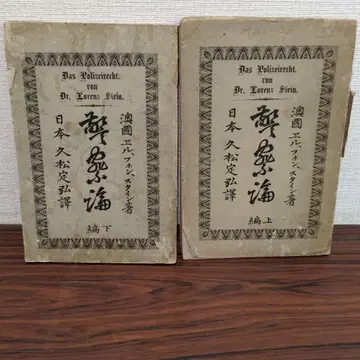 Das Polizeirecht.
von
Dr. Lorenz Stein.
澳國エル、フォン、スタイン著
警察論
日本 久松定弘譯
下編
Das Polizeirecht.
von
Dr. Lorenz Stein.
澳國エル、フォン、スタイン著
警察論
日本 久松定弘譯
上編